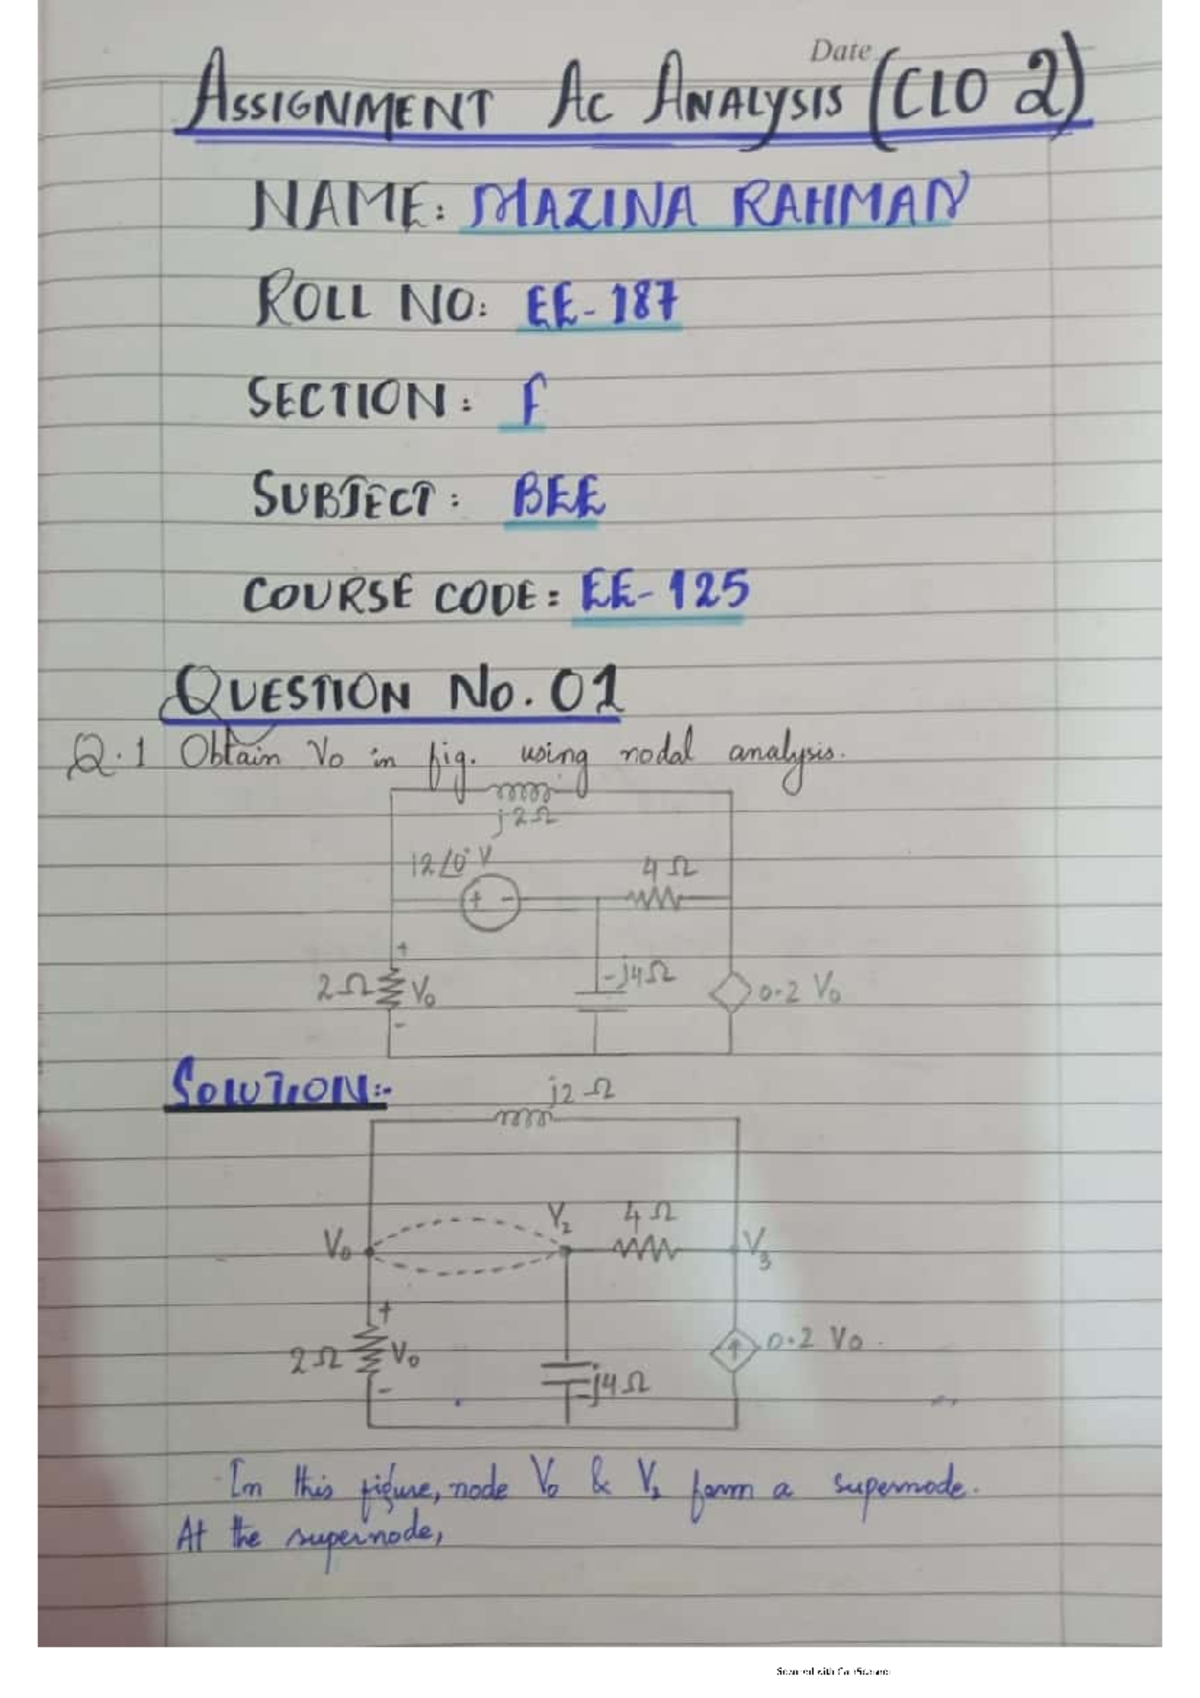 Date
ASSIGNMENT AC ANALYSIS (CLO 2)
NAME: MAZINA RAHMAN
ROLL NO: EE-187
SECTION: F
SUBJECT: BEE
COURSE CODE: EE-125
QUESTION No. 01
Q.1 Obtain Vo in fig. using nodal analysis.
j2Ω
12∠0° V
4Ω
+ -
+
2Ω Vo
-
-j4Ω
0.2 Vo
SOLUTION:-
j2Ω
Vo
V2
4Ω
V3
+
2Ω Vo
-
-j4Ω
0.2 Vo
In this figure, node Vo & V2 form a supernode.
At the supernode,
Scanned with CamScanner